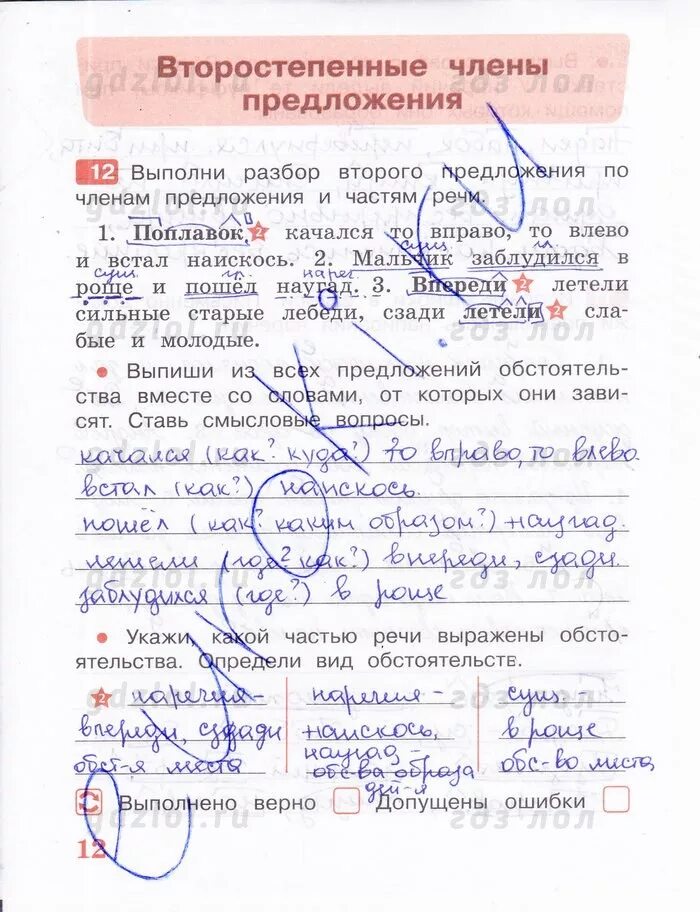 Второстепенные члены
предложения
12 Выполни разбор второго предложения по
членам предложения и частям речи.
1. Поплавок 2 качался то вправо, то влево
сущ. гл.
и встал наискось. 2. Мальчик заблудился в
сущ. гл. нареч.
роще и пошёл наугад. 3. Впереди 2 летели
сильные старые лебеди, сзади летели 2 сла-
бые и молодые.
• Выпиши из всех предложений обстоятель-
ства вместе со словами, от которых они зави-
сят. Ставь смысловые вопросы.
качался (как? куда?) то вправо, то влево
встал (как?) наискось.
пошёл (как? каким образом?) наугад.
летели (где? как?) впереди, сзади.
заблудился (где?) в роще
• Укажи, какой частью речи выражены обсто-
ятельства. Определи вид обстоятельств.
2 наречия - наречия - сущ. -
впереди, сзади наискось, в роще
обст-я места наугад - обс-во места
обс-ва образа
дей-я
Выполнено верно Допущены ошибки
12
gdzlol.ru
гдз лол